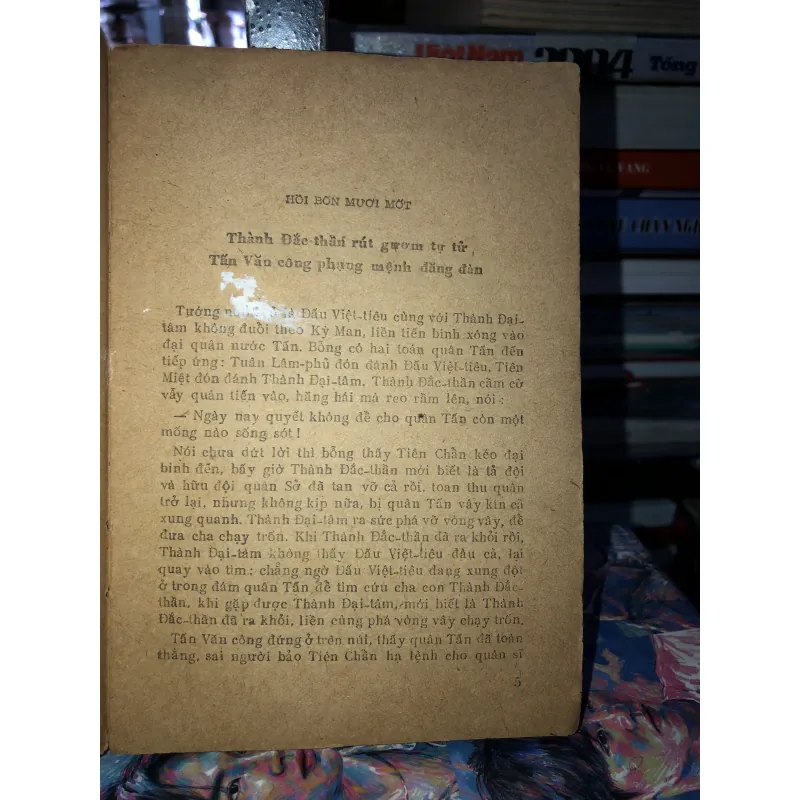 Việt Nam 2004 Tổng
VANG
HỒI BỐN MƯƠI MỐT
Thành Đắc-thần rút gươm tự tử,
Tấn Văn công phụng mệnh đăng đàn
Tướng là Đấu Việt-tiêu cùng với Thành Đại-
tâm không đuổi theo Kỳ Man, liền tiến binh xông vào
đại quân nước Tấn. Bỗng có hai toán quân Tấn đến
tiếp ứng: Tuân Lâm-phủ đón đánh Đấu Việt-tiêu, Tiên
Miệt đón đánh Thành Đại-tâm, Thành Đắc-thần cầm cờ
vẫy quân tiến vào, hăng hái mà reo rầm lên, nói:
— Ngày nay quyết không để cho quân Tấn còn một
mống nào sống sót!
Nói chưa dứt lời thì bỗng thấy Tiên Chẩn kéo đại
binh đến, bấy giờ Thành Đắc-thần mới biết là tả đội
và hữu đội quân Sở đã tan vỡ cả rồi, toan thu quân
trở lại, nhưng không kịp nữa, bị quân Tấn vây kín cả
xung quanh. Thành Đại-tâm ra sức phá vỡ vòng vây, để
đưa cha chạy trốn. Khi Thành Đắc-thần đã ra khỏi rồi,
Thành Đại-tâm không thấy Đấu Việt-tiêu đâu cả, lại
quay vào tìm; chẳng ngờ Đấu Việt-tiêu đang xung đột
ở trong đám quân Tấn để tìm cứu cha con Thành Đắc-
thần, khi gặp được Thành Đại-tâm, mới biết là Thành
Đắc-thần đã ra khỏi, liền cùng phá vòng vây chạy trốn.
Tấn Văn công đứng ở trên núi, thấy quân Tấn đã toàn
thắng, sai người bảo Tiên Chẩn hạ lệnh cho quân sĩ
5